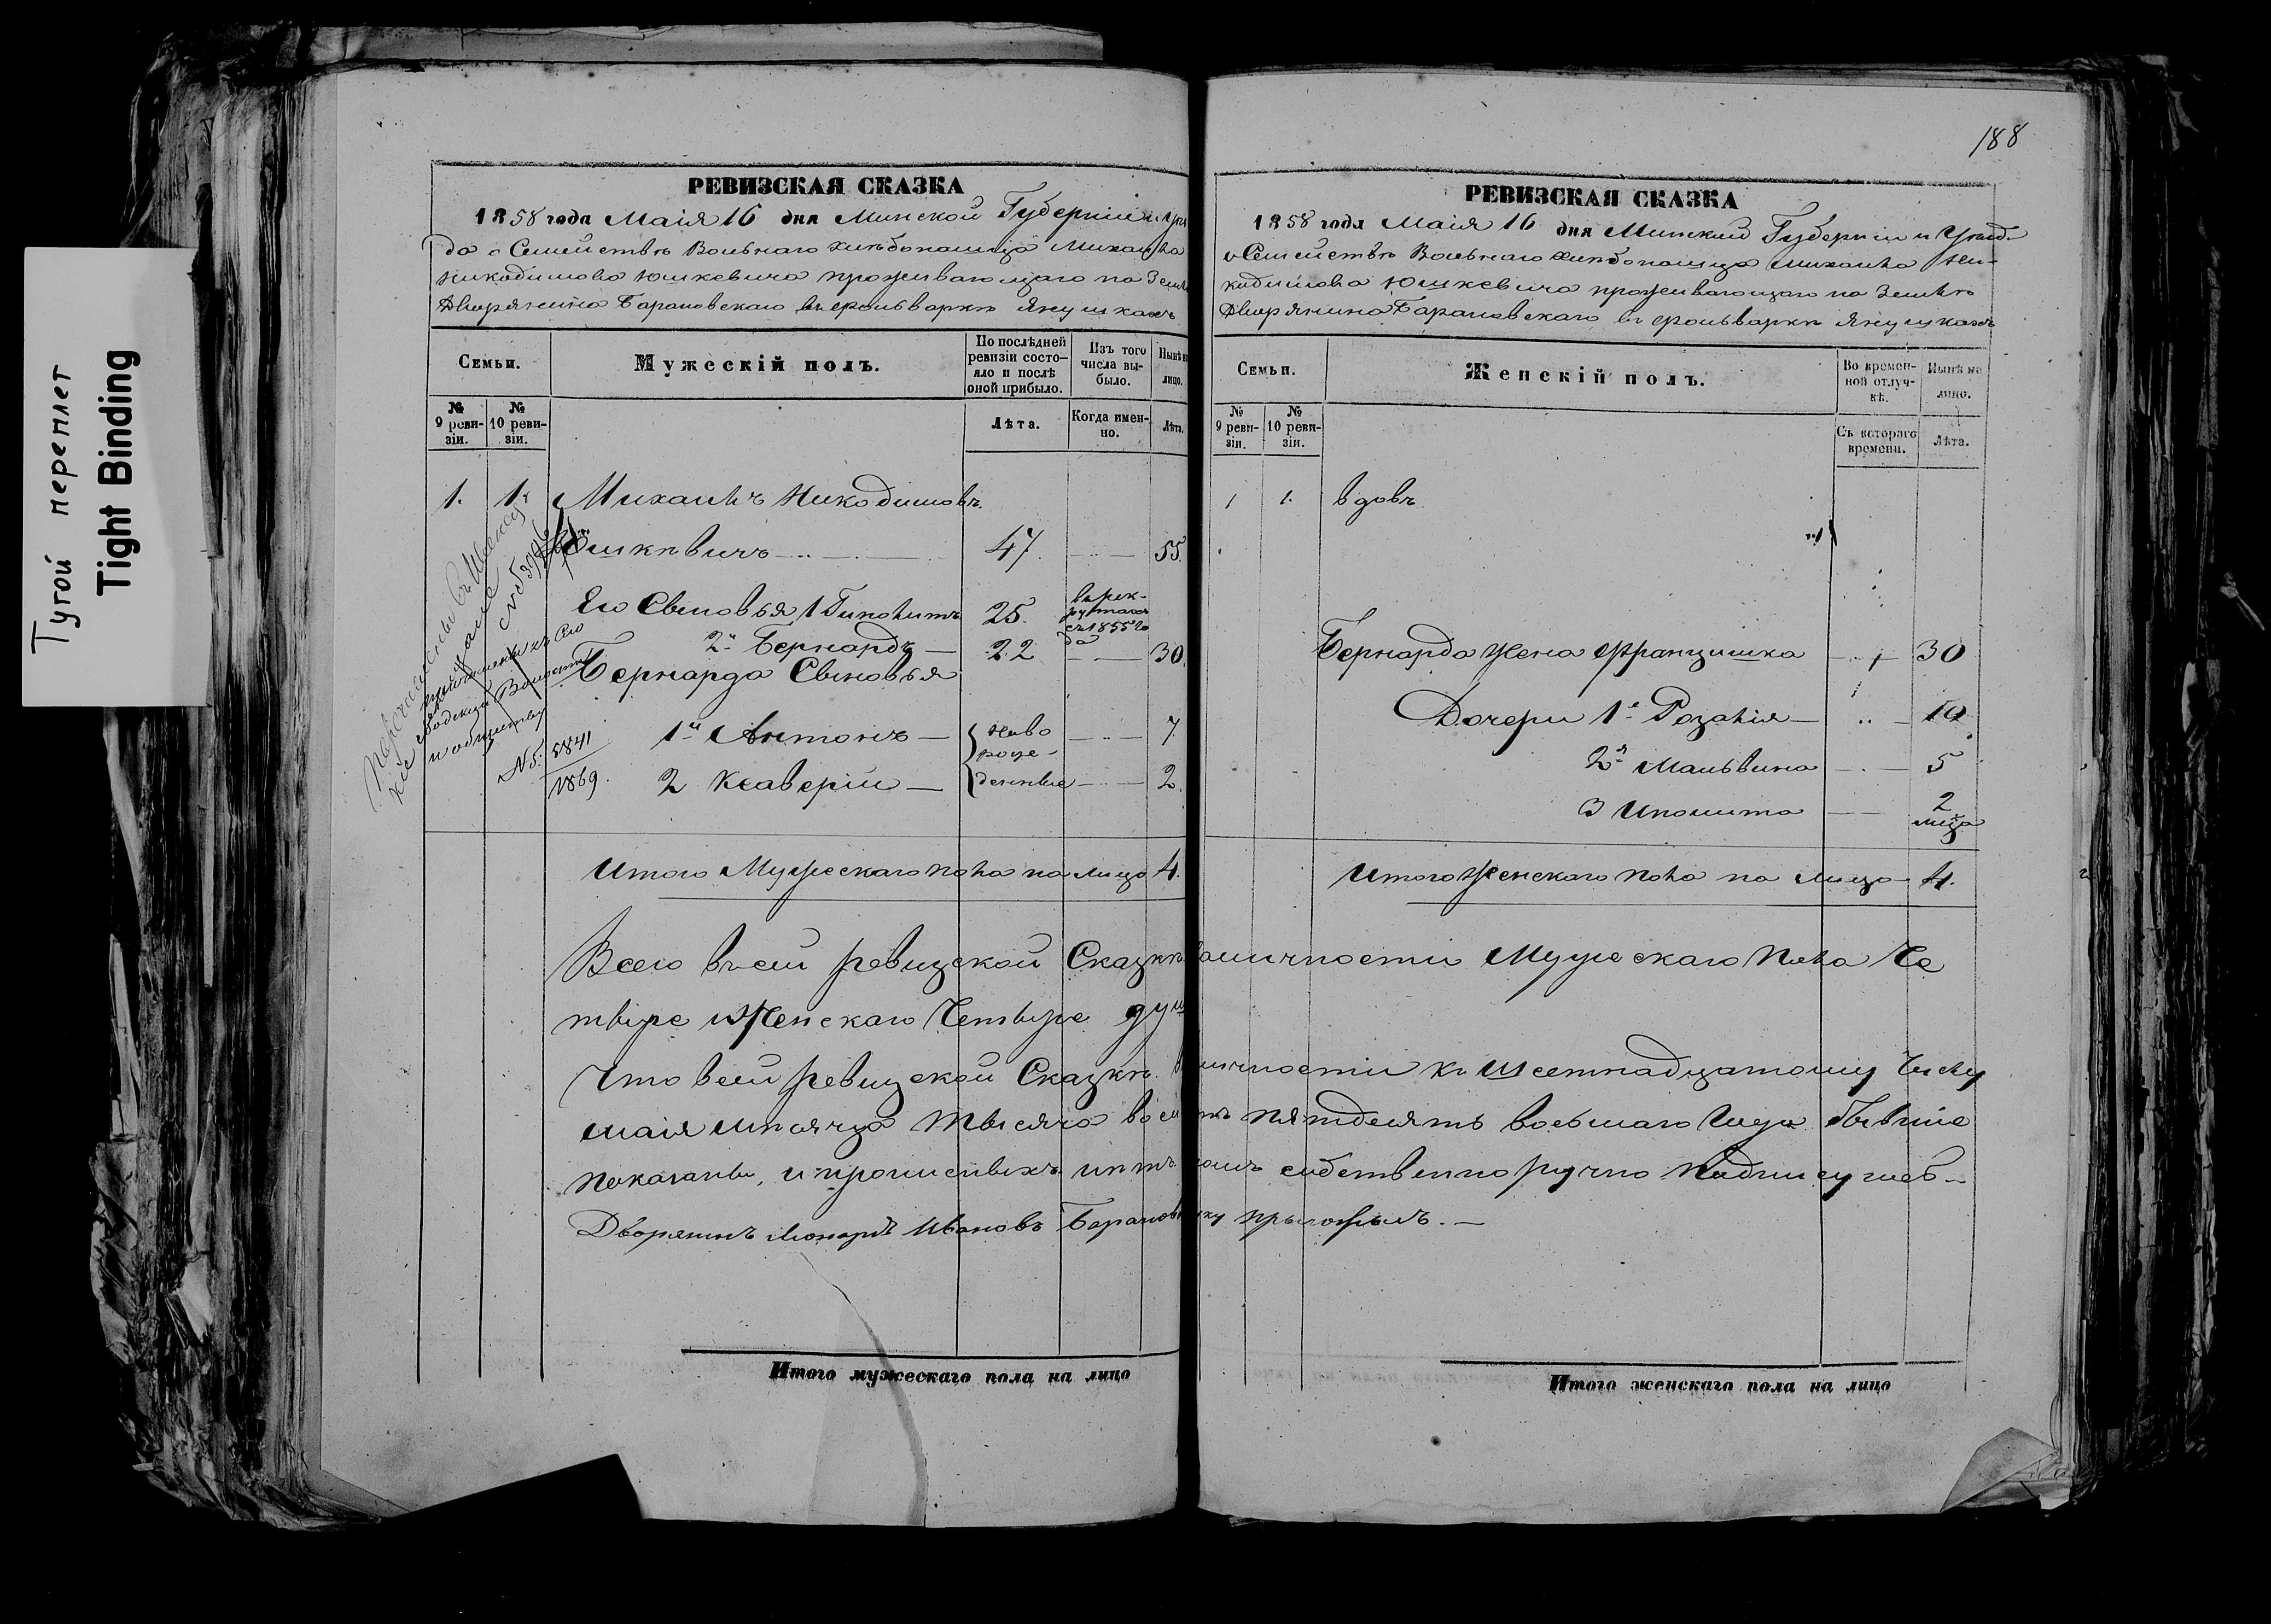 Тугой переплет
Tight Binding
РЕВИЗСКАЯ СКАЗКА
1858 года Маія 16 дня Минской Губерніи и Уѣз
да о Семействѣ Вольнаго хлѣбопашца Михаила
Никодимова Юшкевича проживающаго на Земл
Дворянина Барановскаго въ фольваркѣ Янушкахъ
Семьи.
Мужескій полъ.
По послѣдней ревизіи состояло и послѣ оной прибыло.
Изъ того числа выбыло.
Нынѣ на лицо.
№ 9 ревизіи.
№ 10 ревизіи.
Лѣта.
Когда именно.
Лѣта.
1. 1. Михаилъ Никодимовъ
Юшкевичъ 47 55
Его Сыновья 1 Гиполитъ 25. въ рекрутахъ съ 1855 года
2й Бернардъ 22 30
Бернарда Сыновья
1й Антонъ новорожденные 7
2 Ксаверій 2
№ 5841
1869.
Итого Мужескаго пола на лицо 4.
188
РЕВИЗСКАЯ СКАЗКА
1858 года Маія 16 дня Минской Губерніи и Уѣзда
о Семействѣ Вольнаго хлѣбопашца Михаила Ни-
кодимова Юшкевича проживающаго на Землѣ
Дворянина Барановскаго въ фольваркѣ Янушкахъ
Семьи.
Женскій полъ.
Во временной отлучкѣ.
Нынѣ на лицо.
№ 9 ревизіи.
№ 10 ревизіи.
Съ котораго времени.
Лѣта.
1 1. вдовъ
Бернарда жена Францишка 30
Дочери 1я Розалія 10
2я Мальвина 5
3 Иполита 2
Итого Женскаго пола на лицо 4.
Всего въ сей ревизской Сказкѣ наличности Мужескаго пола Че
тыре и Женскаго Четыре душ
Что въ сей ревизской Сказкѣ наличности къ шестнадцатому Числу
маія мѣсяца тысяча восемь пятдесятъ восьмаго Года бывшіе
показаны, и прописныхъ нѣтъ томъ собственноручно подпису
Дворянинъ Ивановъ Барановску
Итого мужескаго пола на лицо
Итого женскаго пола на лицо